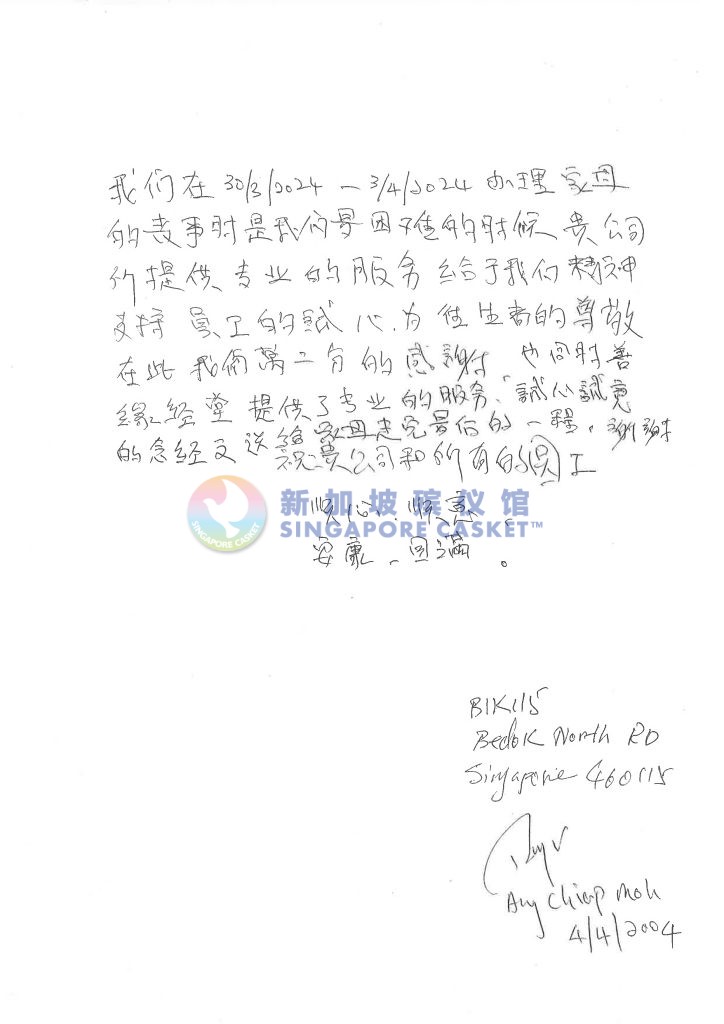 我们在 30/3/2024 - 3/4/2024 办理家母
的丧事时是我们最困难的时候 贵公司
所提供专业的服务 给于我们精神
支持 员工的誠心 为往生者的尊敬
在此我们萬二分的感謝, 也同时善
緣经堂 提供了专业的服务、誠心誠意
的念经文送给家母走完最后的一程。謝謝
祝贵公司和所有的员工
新加坡殡仪馆
順心、順意、
SINGAPORE CASKET™
SINGAPORE CASKET
安康、圆满。
BlK115
Bedok North RD
Singapore 460115
Ang Chiap Moh
4/4/2004